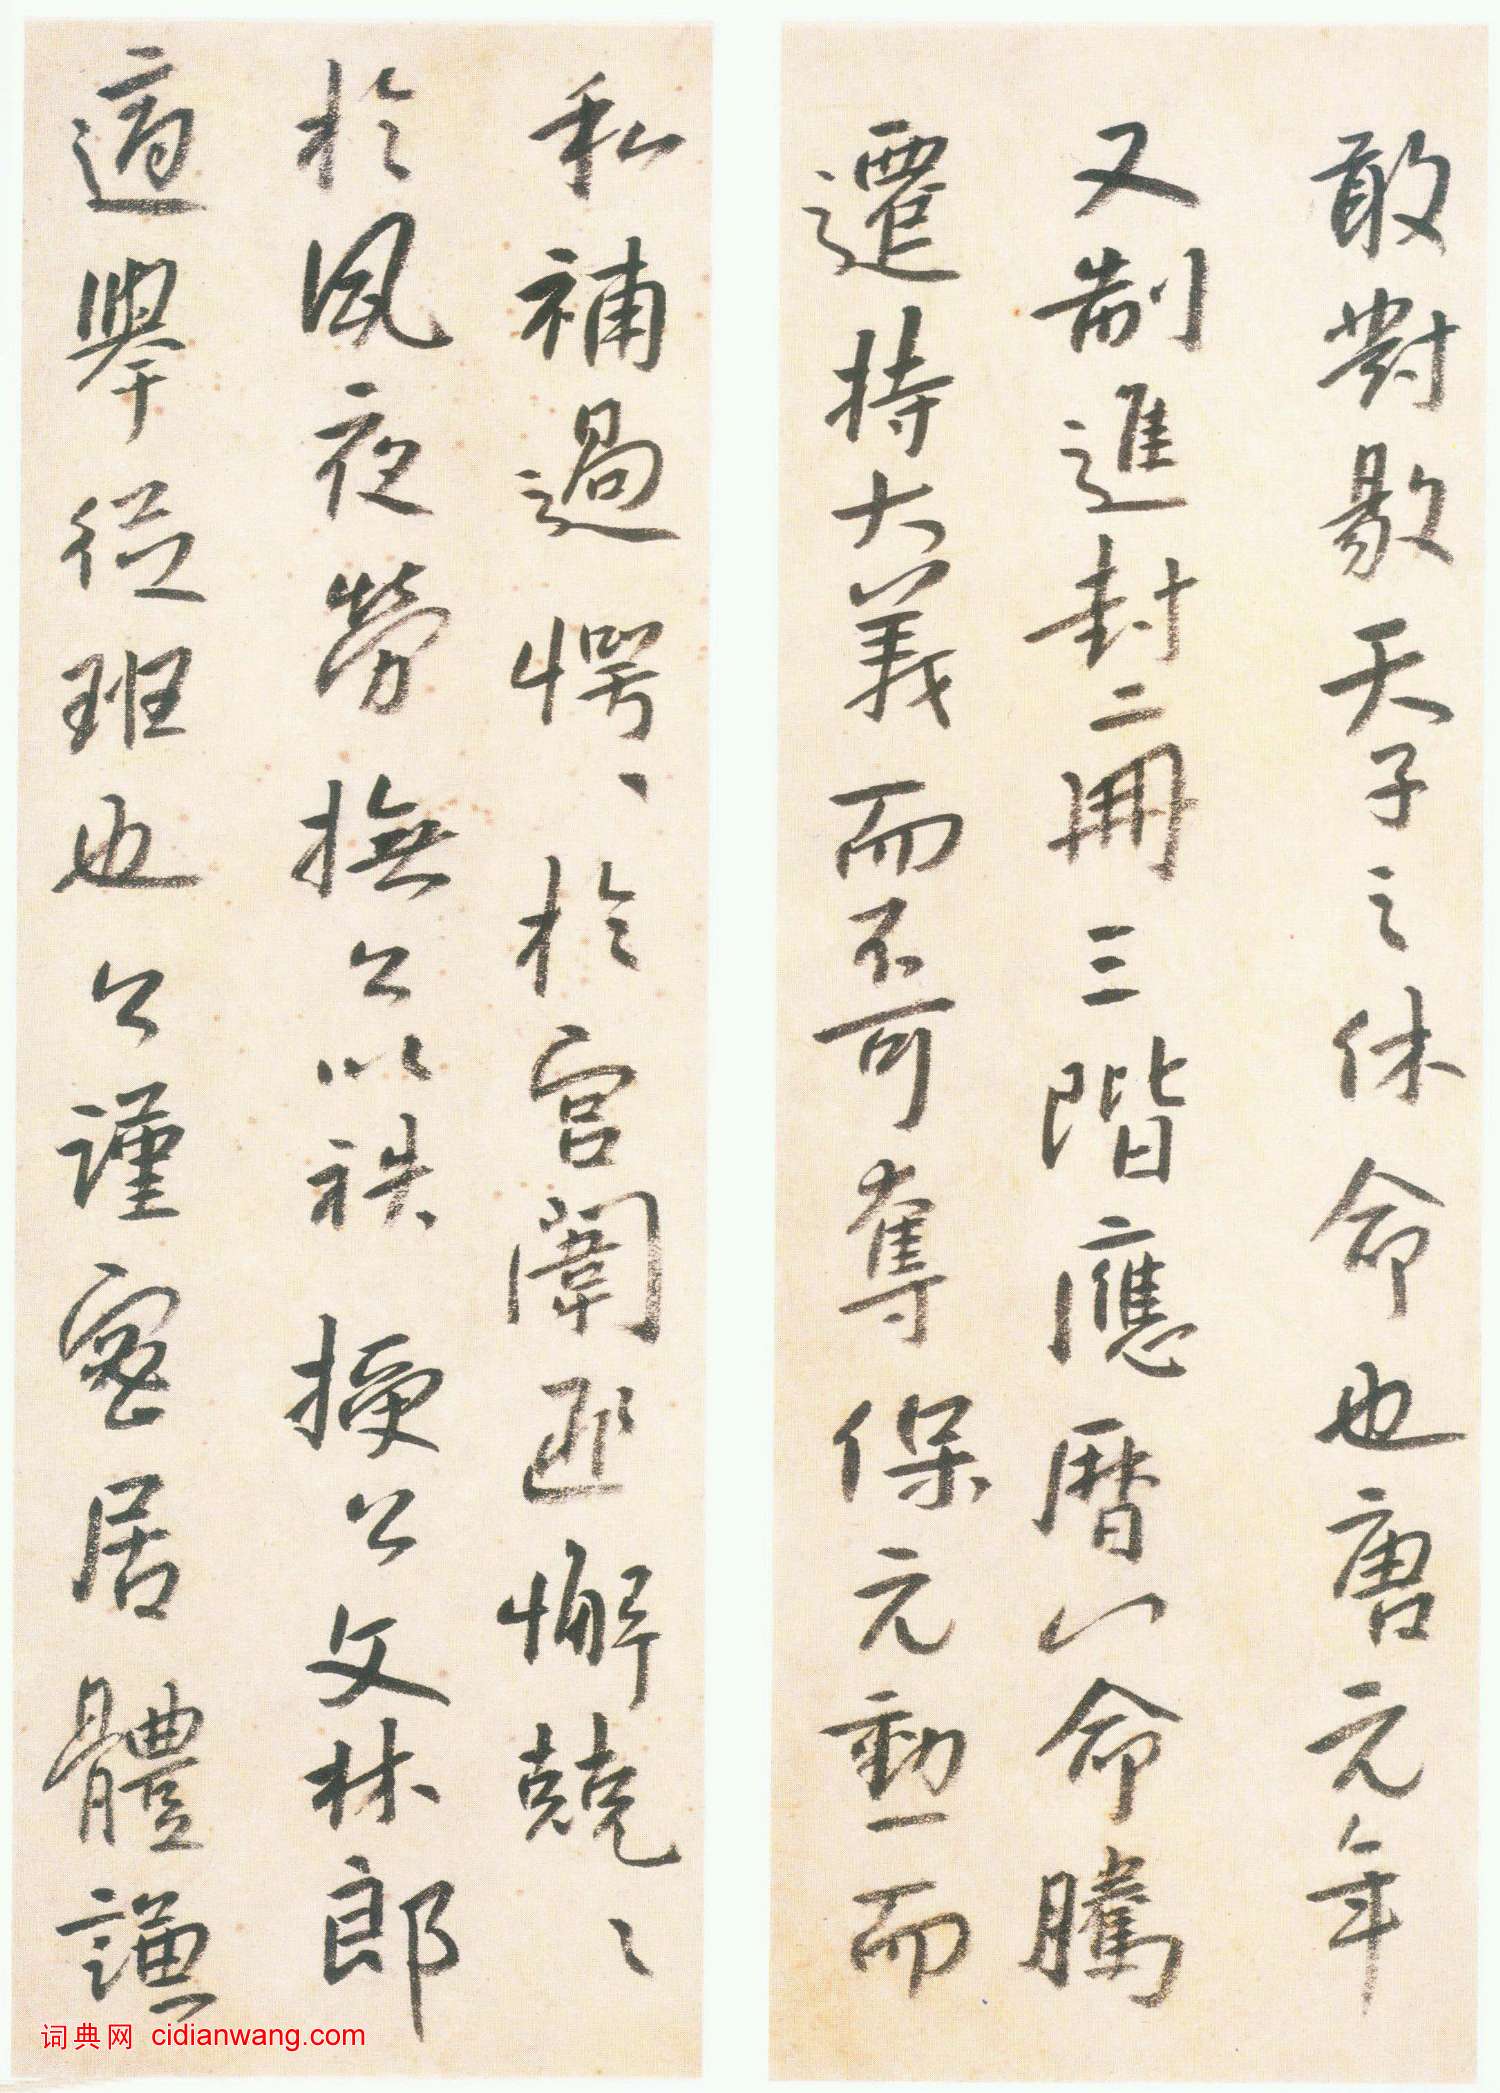 敢對敭天子之休命也唐元年
又制進封二冊三階應曆八命騰
遷持大義而不可奪保元勳而
私補過愕、於宮闈匪懈兢々
於夙夜勞撫公以袟授公文林郎
適舉從班也公謹密居體謙
词典网 cidianwang.com